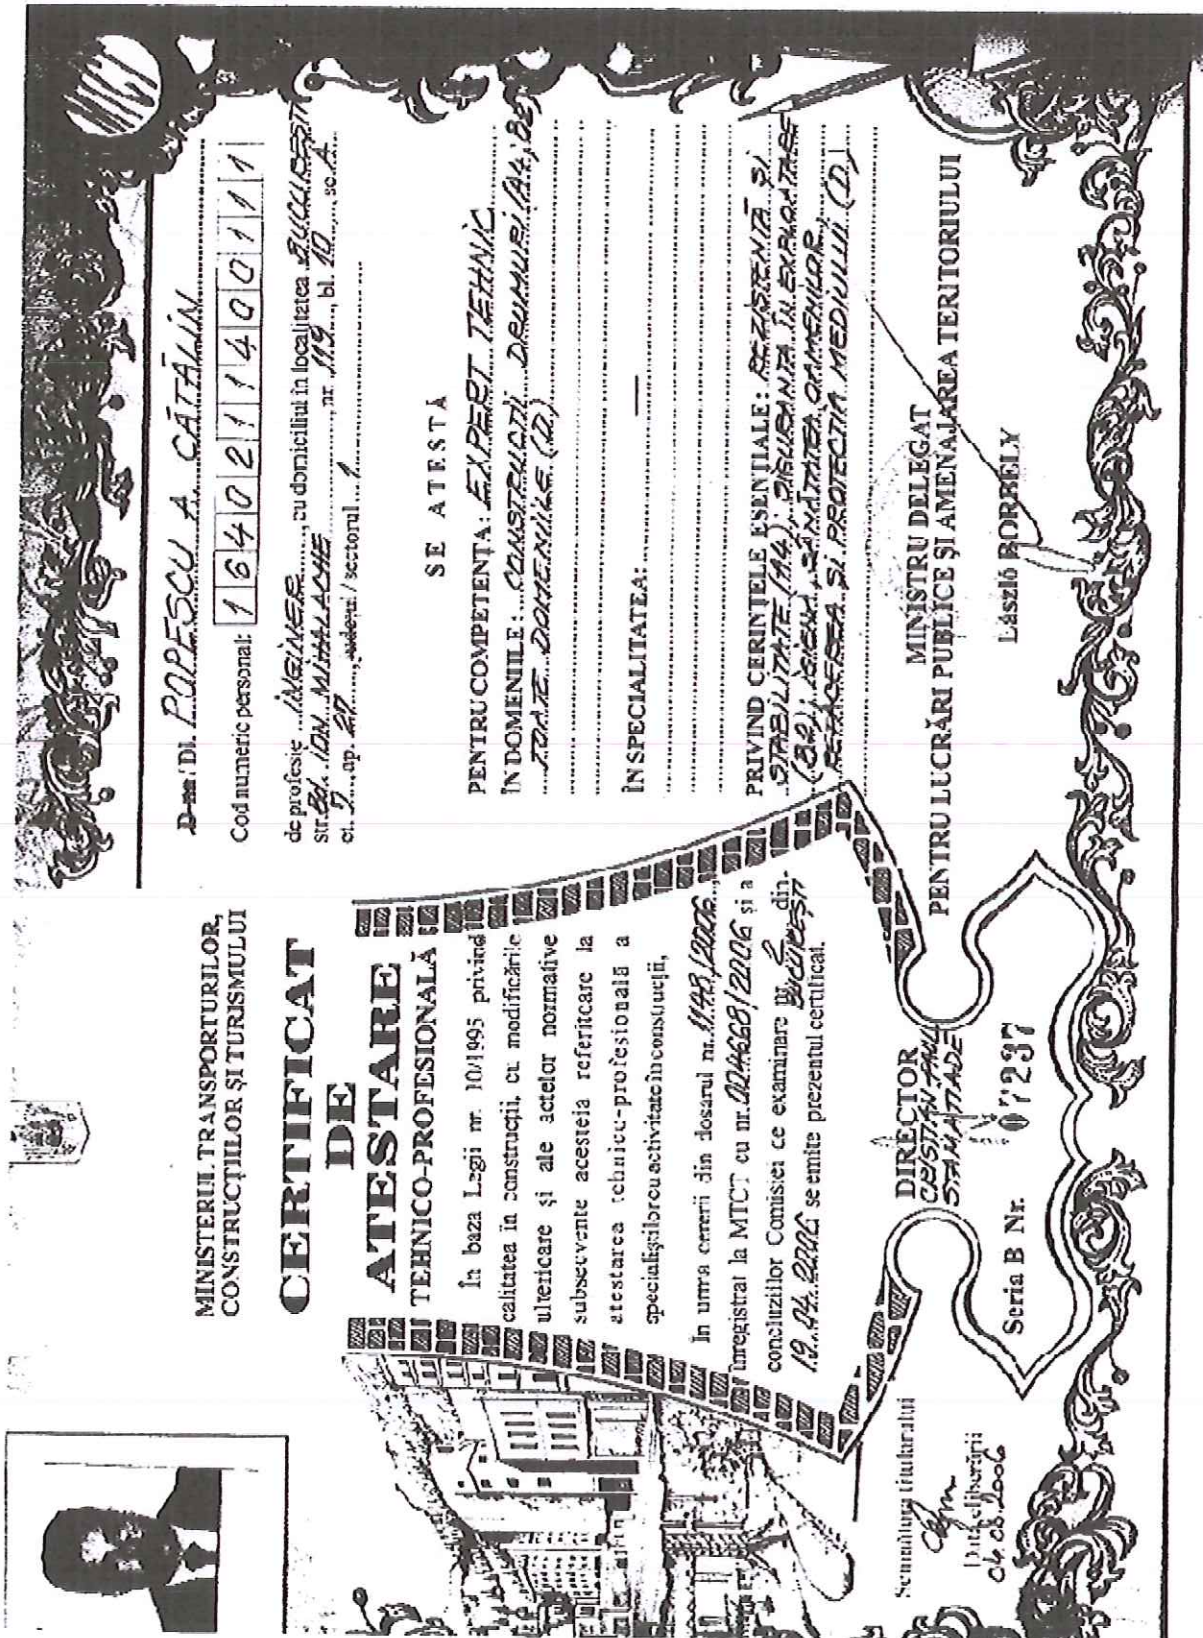 MINISTERUL TRANSPORTURILOR,
CONSTRUCȚIILOR ȘI TURISMULUI
CERTIFICAT
DE
ATESTARE
TEHNICO-PROFESIONALĂ
În baza Legii nr. 10/1995 privind
calitatea în construcții, cu modificările
ulterioare și ale actelor normative
subsecvente acesteia referitoare la
atestarea tehnico-profesională a
specialiștilor cu activitate în construcții,
În urma cererii din dosarul nr.
înregistrat la MTCT cu nr. și a
concluziilor Comisiei de examinare nr. 2 din
BUCUREȘTI
19.04.2006 se emite prezentul certificat.
DIRECTOR
CRISTIAN PAUL
STAMATIADE
Seria B Nr. 07237
Semnătura titularului
Data eliberării
04.08.2006
D-na/Dl. POPESCU A. CĂTĂLIN
Cod numeric personal: 1 6 4 0 2 1 1 4 0 0 1 1 1
de profesie INGINER, cu domiciliul în localitatea BUCUREȘTI
str. Bd. ION MIHALACHE, nr. 119, bl. 10, sc. A
et. 7, ap. 27, județul / sectorul 1
SE ATESTĂ
PENTRU COMPETENȚA: EXPERT TEHNIC
ÎN DOMENIILE: CONSTRUCȚII DRUMURI (A4, B2)
TOATE DOMENIILE (D)
ÎN SPECIALITATEA: —
PRIVIND CERINȚELE ESENȚIALE: REZISTENȚĂ ȘI
STABILITATE (A4); SIGURANȚA ÎN EXPLOATARE
(B2); IGIENA, SĂNĂTATEA OAMENILOR,
REFACEREA ȘI PROTECȚIA MEDIULUI (D)
MINISTRU DELEGAT
PENTRU LUCRĂRI PUBLICE ȘI AMENAJAREA TERITORIULUI
László BORBELY